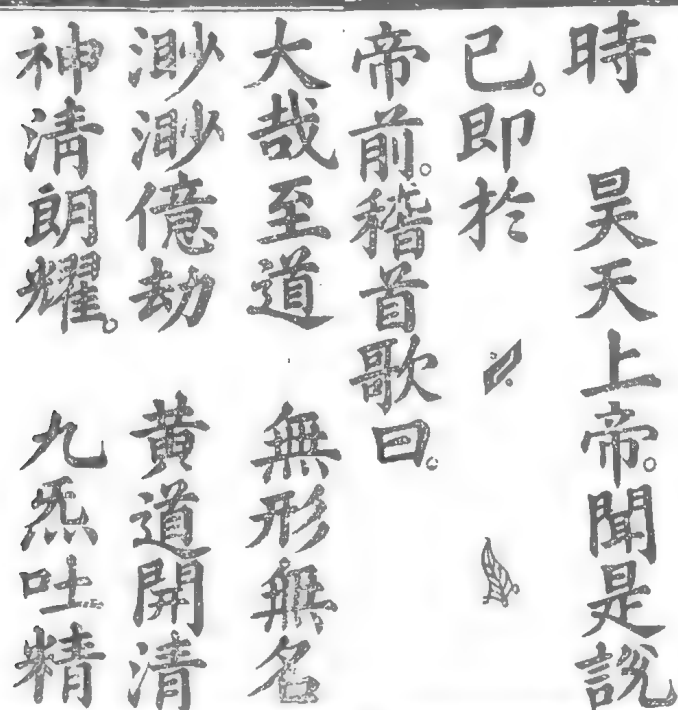 時　昊天上帝。聞是說
已。即於
帝前。稽首歌曰。
大哉至道　無形無名
渺渺億劫　黄道開清
神清朗耀。　九炁吐精